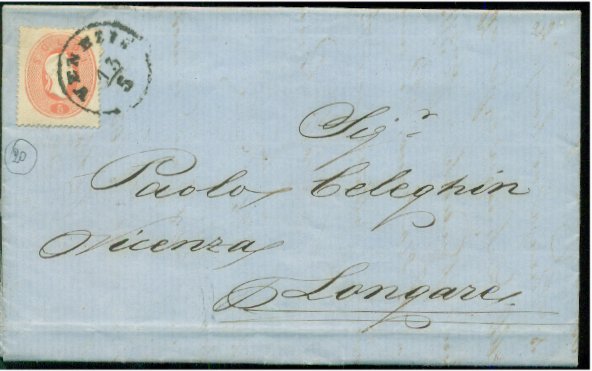 VENEZIA
13/5
5
Sig.r
Paolo Celeghin
Vicenza
Longare
20